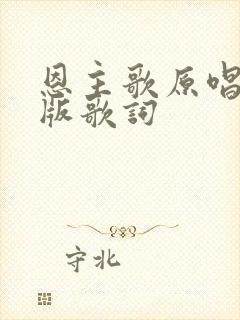 恩主歌原唱
版歌詞
守北